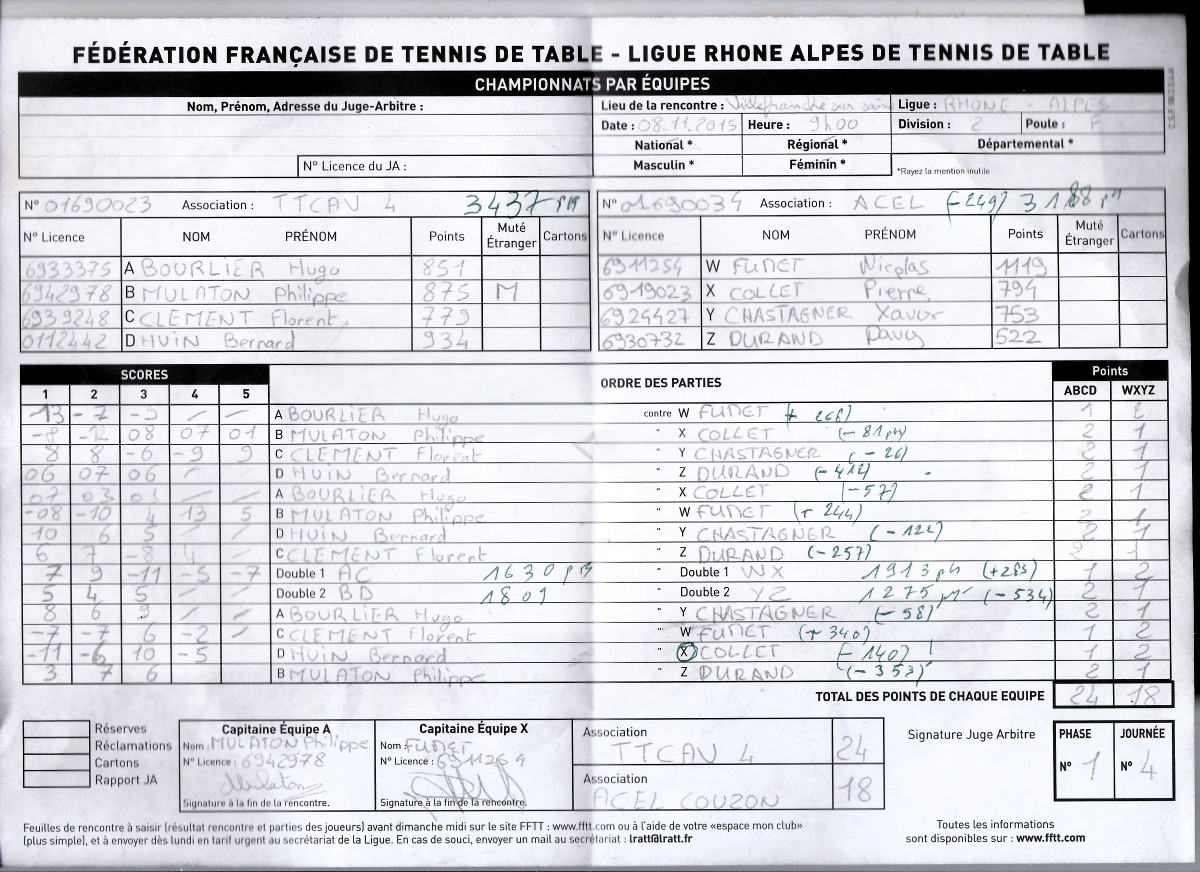 FÉDÉRATION FRANÇAISE DE TENNIS DE TABLE - LIGUE RHONE ALPES DE TENNIS DE TABLE
CHAMPIONNATS PAR ÉQUIPES
Nom, Prénom, Adresse du Juge-Arbitre :
Lieu de la rencontre : Villefranche sur saône Ligue : RHONE - ALPES
Date : 08.11.2015 Heure : 9h00 Division : 2 Poule : F
National * Régional * Départemental *
N° Licence du JA : Masculin * Féminin * *Rayez la mention inutile
N° 01690023 Association : TTCAV 4 3437 pts N° 01690034 Association : ACEL (-249) 3188 pts
N° Licence NOM PRÉNOM Points Muté Étranger Cartons N° Licence NOM PRÉNOM Points Muté Étranger Cartons
6933375 A BOURLIER Hugo 851 6911254 W FUNET Nicolas 1119
6942978 B MULATON Philippe 875 M 6919023 X COLLET Pierre 794
6939248 C CLEMENT Florent 779 6924427 Y CHASTAGNER Xavier 753
0112442 D HUIN Bernard 934 6930732 Z DURAND Davy 522
SCORES ORDRE DES PARTIES Points
1 2 3 4 5 ABCD WXYZ
-13 -7 -5 / / A BOURLIER Hugo contre W FUNET (+ 268) 1 2
-8 -12 08 07 01 B MULATON Philippe " X COLLET (- 81 pts) 2 1
8 8 -6 -9 9 C CLEMENT Florent " Y CHASTAGNER (- 26) 2 1
06 07 06 / D HUIN Bernard " Z DURAND (- 412) 2 1
07 03 01 / / A BOURLIER Hugo " X COLLET (-57) 2 1
-08 -10 4 13 5 B MULATON Philippe " W FUNET (+ 244) 2 1
10 6 5 / / D HUIN Bernard " Y CHASTAGNER 2 1
6 7 -8 4 / C CLEMENT Florent " Z DURAND (- 257) 2 1
7 9 -11 -5 -7 Double 1 AC 1630 pts " Double 1 WX 1913 pts (+283) 1 2
5 4 5 / / Double 2 BD 1809 " Double 2 YZ 1275 pts (- 534) 2 1
8 6 9 / A BOURLIER Hugo " Y CHASTAGNER 2 1
-7 -7 6 -2 / C CLEMENT Florent " W FUNET (+ 340) 1 2
-11 -6 10 -5 D HUIN Bernard " X COLLET (- 140) 1 2
3 7 6 B MULATON Philippe " Z DURAND (- 353) 2 1
TOTAL DES POINTS DE CHAQUE EQUIPE 24 18
Réserves
Réclamations
Cartons
Rapport JA
Capitaine Équipe A
Nom : MULATON Philippe
N° Licence : 6942978
Mulaton
Signature à la fin de la rencontre.
Capitaine Équipe X
Nom FUNET
N° Licence :
Signature à la fin de la rencontre.
Association
TTCAV 4 24
Association
ACEL COUZON 18
Signature Juge Arbitre
PHASE JOURNÉE
N° 1 N° 4
Feuilles de rencontre à saisir (résultat rencontre et parties des joueurs) avant dimanche midi sur le site FFTT : www.fftt.com ou à l'aide de votre «espace mon club»
(plus simple), et à envoyer dès lundi en tarif urgent au secrétariat de la Ligue. En cas de souci, envoyer un mail au secrétariat : lratt@lratt.fr
Toutes les informations
sont disponibles sur : www.fftt.com